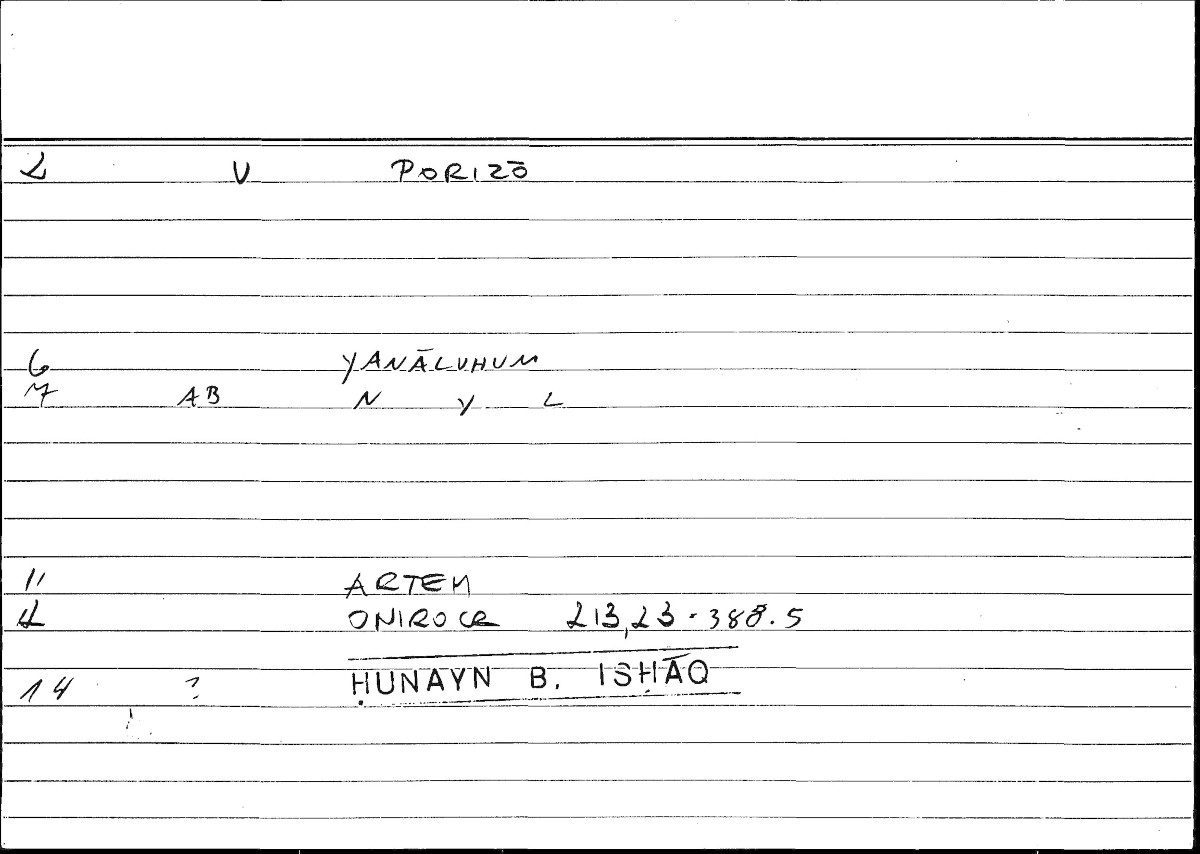 2 V PORIZŌ
6 YANĀLUHUM
7 AB N Y L
11 ARTEM
12 ONIROCR 213,23 - 388.5
14 ? ḤUNAYN B. ISḤĀQ